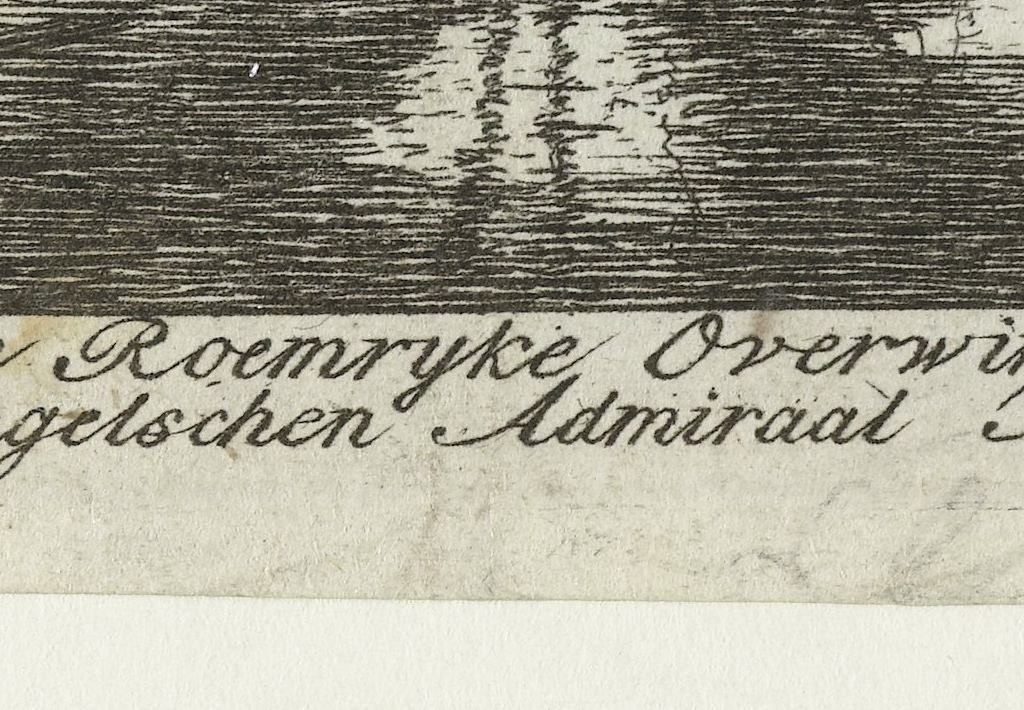 Roemryke Overwin
gelschen Admiraal